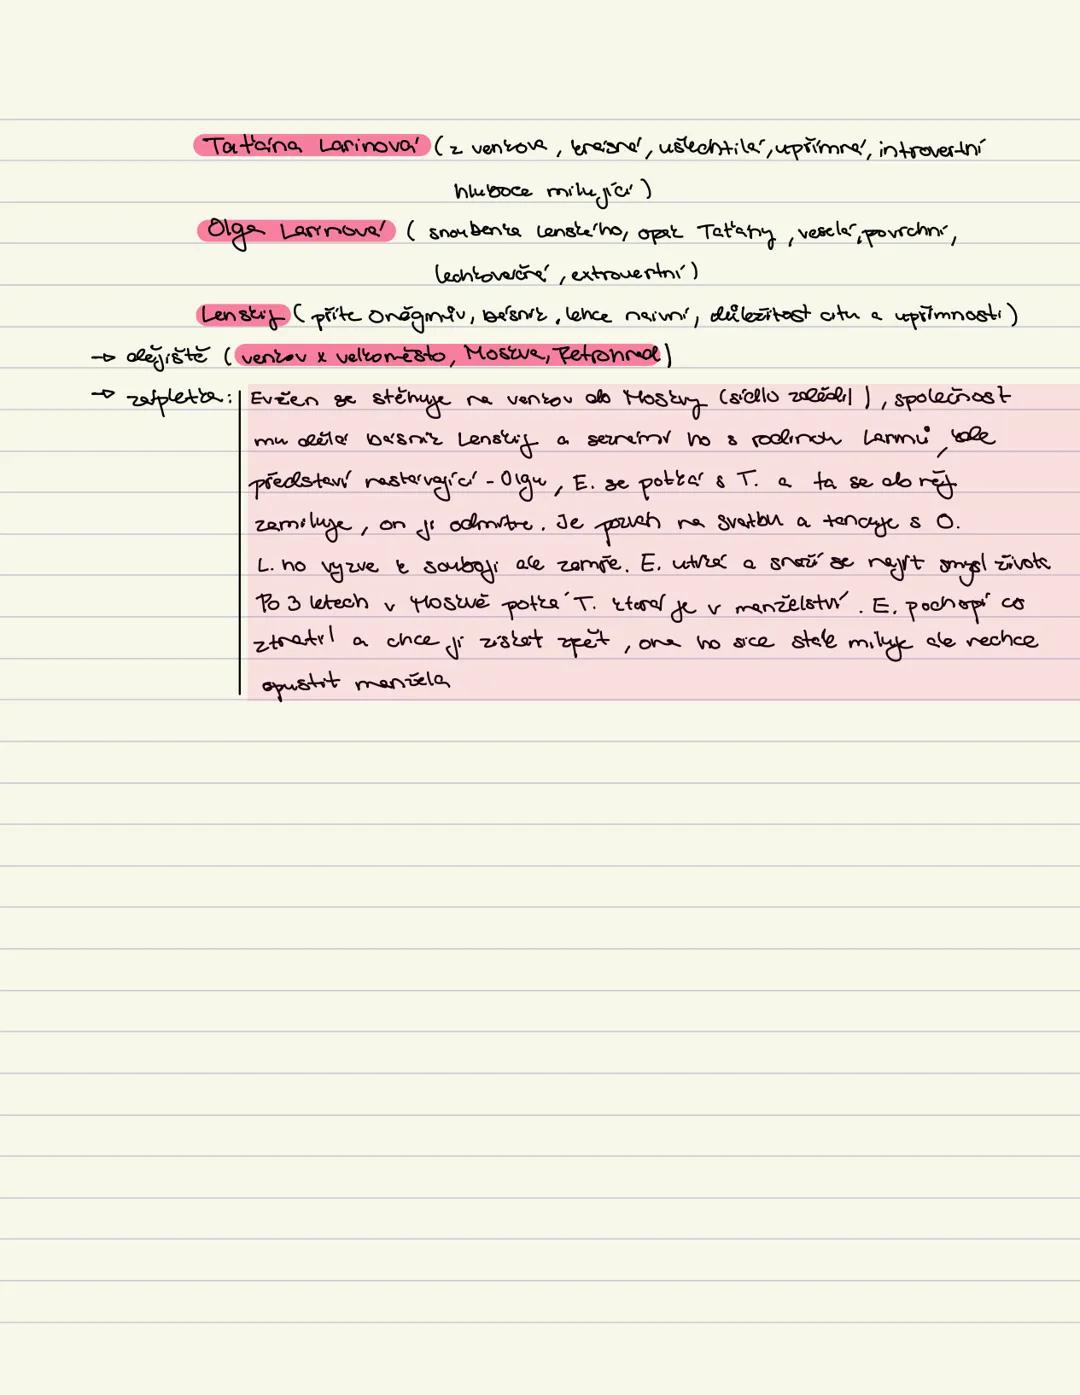 Taťána Larinová (z venkova, krásná, ušechtilá, upřímná, introvertní
hluboce milující)
Olga Larinová (snoubenka Lenského, opak Taťány, veselá, povrchní,
lechkovážná, extrovertní)
Lenskij (přítel Oněginův, básník, lehce naivní, důležitost citu a upřímnosti)
→ dějiště (venkov x velkoměsto, Moskva, Petrohrad)
→ zápletka: Evžen se stěhuje na venkov do Moskvy (sídlo zdědil), společnost
mu dělá básník Lenskij a seznámí ho s rodinou Larinů, kde
představí nastávající - Olgu, E. se potká s T. a ta se do něj
zamiluje, on ji odmítne. Je pozván na svatbu a tancuje s O.
L. ho vyzve k souboji ale zemře. E. utíká a snaží se najít smysl života
Po 3 letech v Moskvě potká T. která je v manželství. E. pochopí co
ztratil a chce ji získat zpět, ona ho sice stále miluje ale nechce
opustit manžela